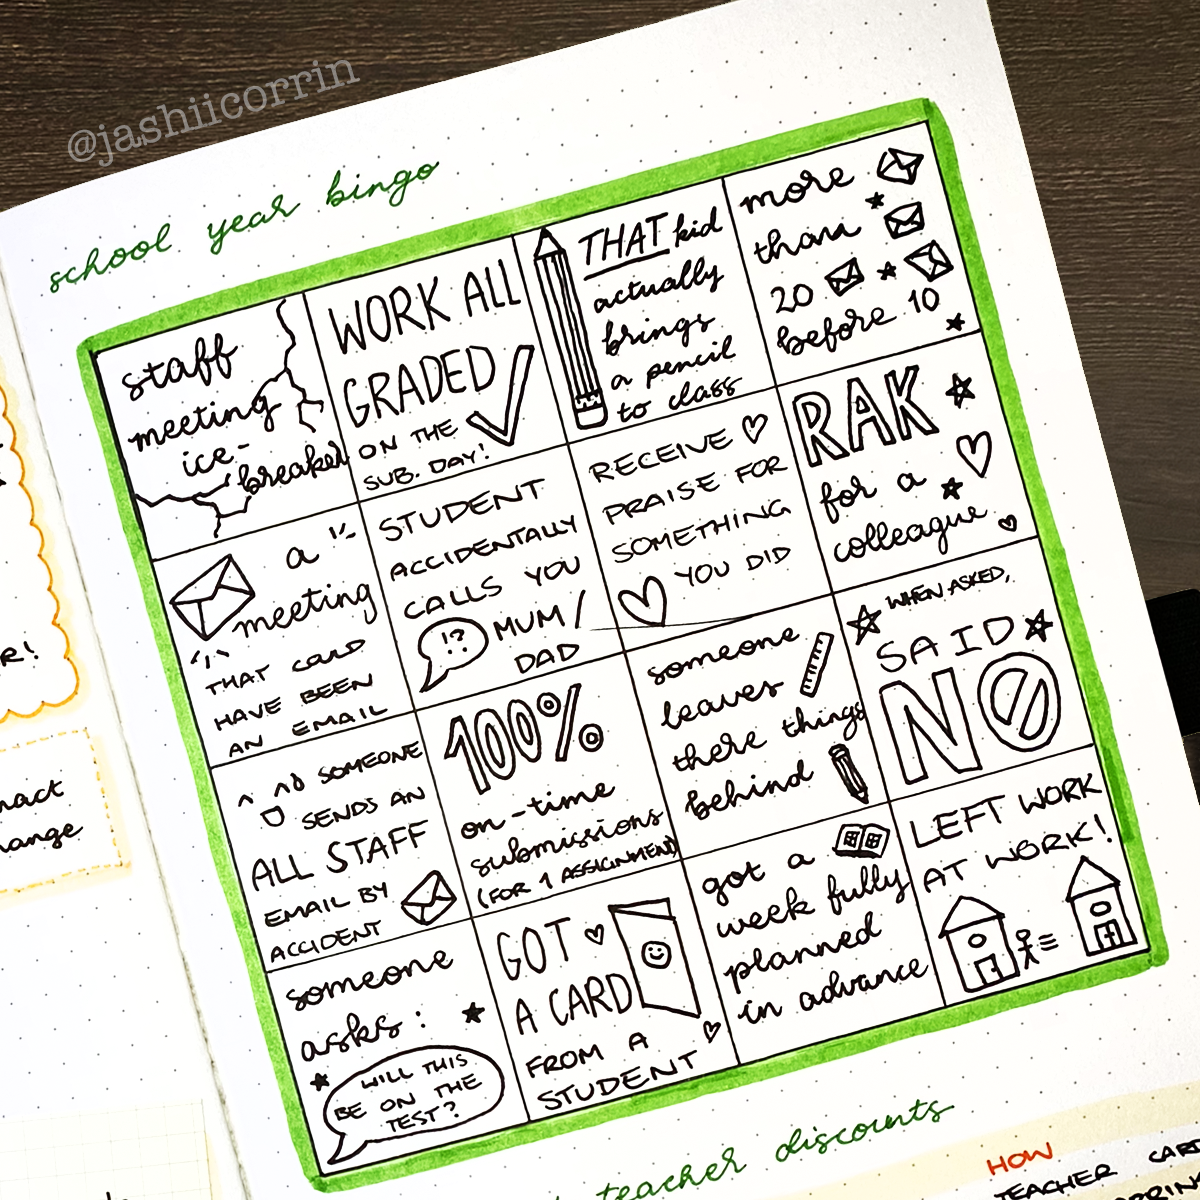 @jashiicorrin
school year bingo
staff
meeting
ice-
breaker
WORK ALL
GRADED
ON THE
SUB. DAY!
THAT kid
actually
brings
a pencil
to class
more
than
20
before 10
a
meeting
THAT COULD
HAVE BEEN
AN EMAIL
STUDENT
ACCIDENTALLY
CALLS YOU
!?
MUM/
DAD
RECEIVE
PRAISE FOR
SOMETHING
YOU DID
RAK
for a
colleague
SOMEONE
SENDS AN
ALL STAFF
EMAIL BY
ACCIDENT
100%
on-time
submissions
(FOR 1 ASSIGNMENT)
someone
leaves
there things
behind
WHEN ASKED,
SAID
NO
someone
asks:
WILL THIS
BE ON THE
TEST?
GOT
A CARD
FROM A
STUDENT
got a
week fully
planned
in advance
LEFT WORK
AT WORK!
teacher discounts
HOW
TEACHER
R!